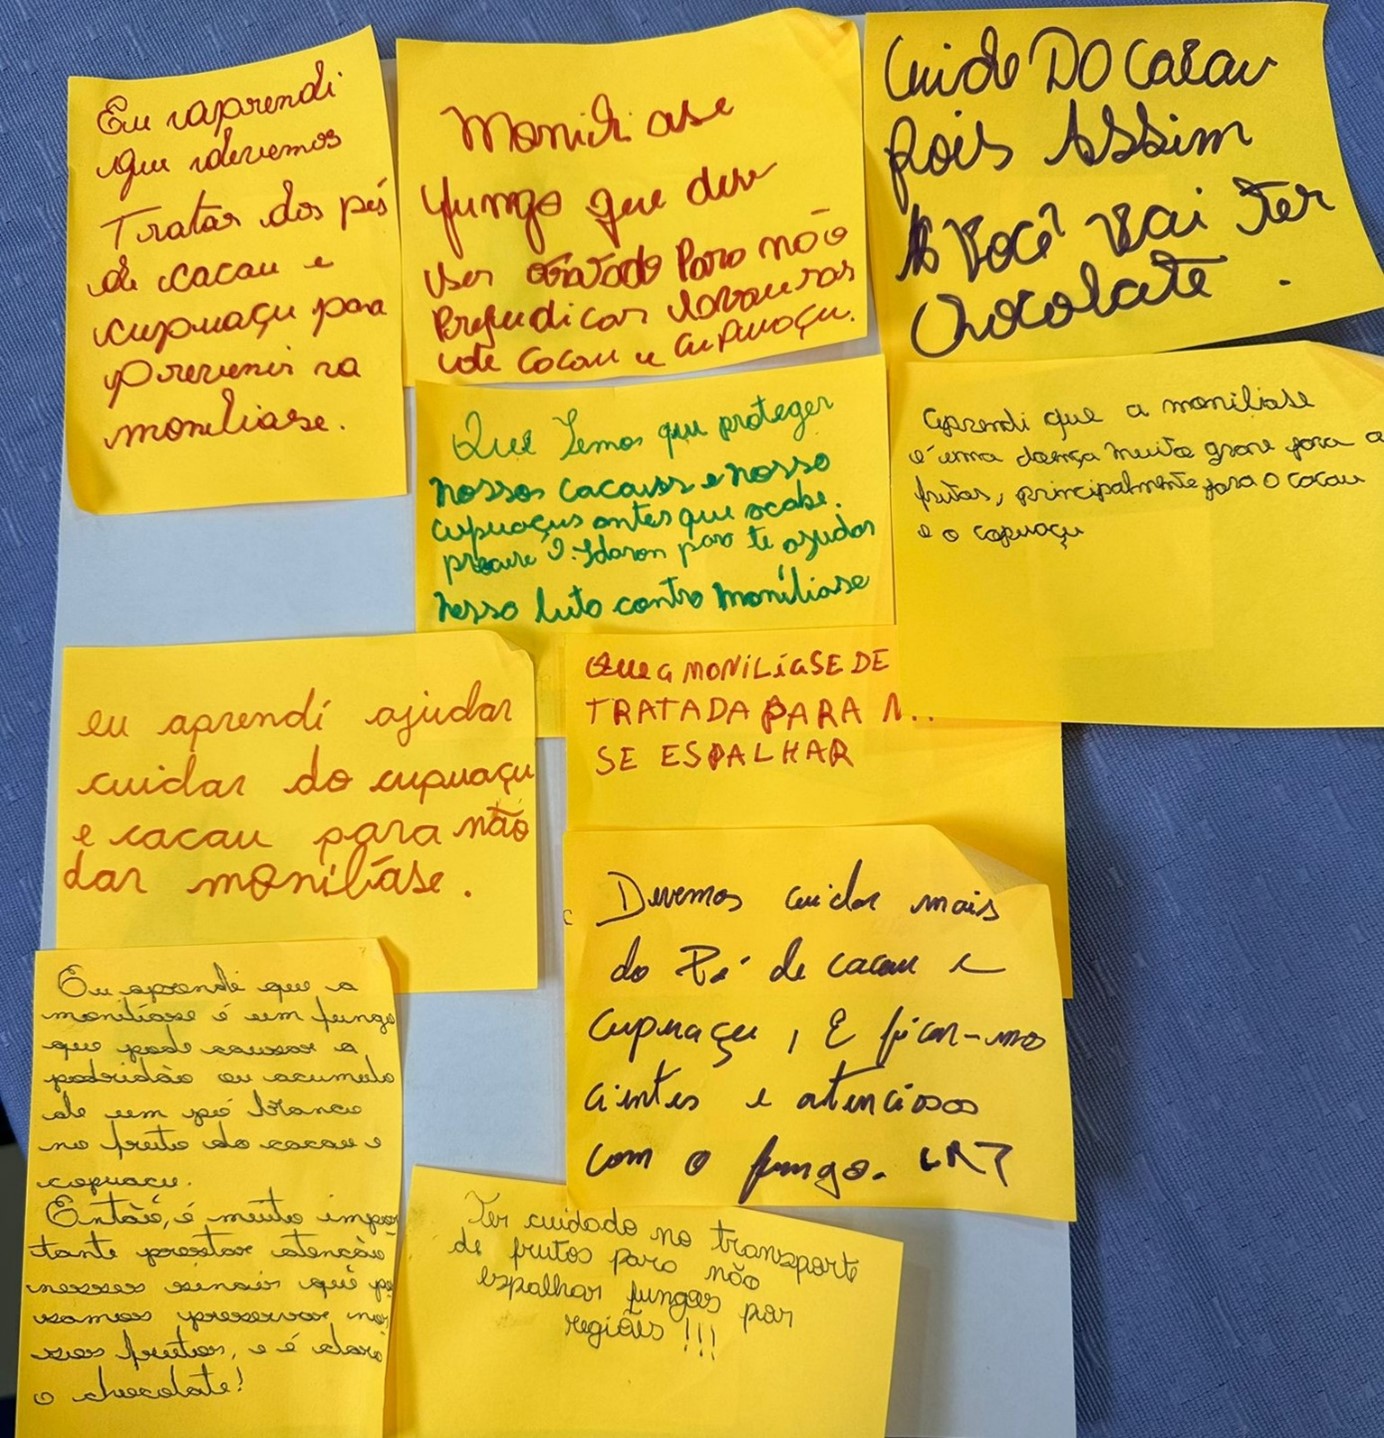 Eu aprendi
que devemos
Tratar dos pés
de cacau e
cupuaçu para
Prevenir a
moniliase.
Moniliase
fungo que deve
ser tratado Para não
Prejudicar lavouras
de cacau e cupuaçu.
Cuide DO Cacau
pois Assim
Você vai ter
chocolate.
Que Temos que proteger
nossos cacaus e nosso
cupuaçus antes que acabe.
procure Idaron para te ajudar
nesso luta contra moniliase
aprendi que a moniliase
é uma doença muito grave para a
frutas, principalmente para o cacau
e o copuaçu
eu aprendí ajudar
cuidar do cupuaçu
e cacau para não
dar moníliáse.
Que a MONILÍASE DE
TRATADA PARA N
SE ESPALHAR
Devemos cuidar mais
do Pé de cacau e
Cupuaçu, E ficar-mos
cientes e atenciosos
com o fungo.
Eu aprendi que a
monilíase é um fungo
que pode causar a
podridão ou acumulo
de um pó branco
no fruto do cacau e
copuaçu.
Então, é muito impor
tante prestar atenção
nesses sinais que p
samos preservar no
sos frutos, e é claro
o chocolate!
Ter cuidado no transporte
de frutos para não
espalhar fungos por
regiões!!!